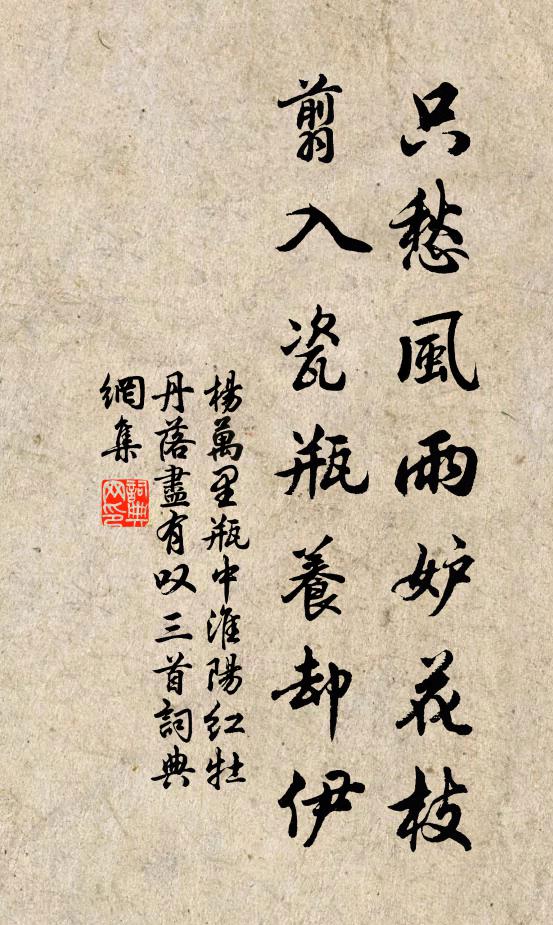 只愁風雨妒花枝
翦入瓷瓶養却伊
楊萬里瓶中淮陽红牡
丹落盡有叹三首詞典
網集
詞典
网印